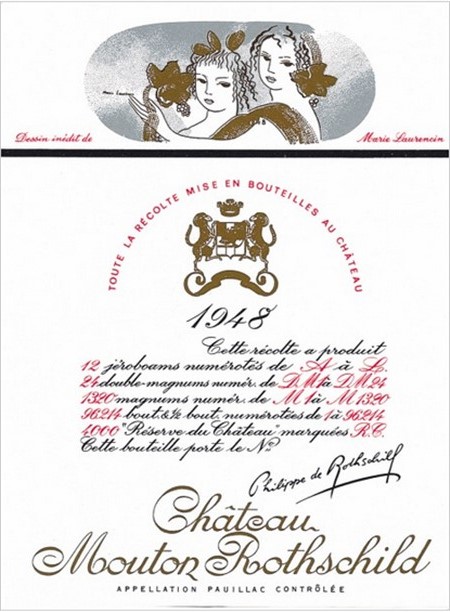 Marie Laurencin
Dessin inédit de Marie Laurencin
TOUTE LA RÉCOLTE MISE EN BOUTEILLES AU CHÂTEAU
1948
Cette récolte a produit
12 jéroboams numérotés de A à L.
24 double-magnums numér. de DM1 à DM24
1320 magnums numér. de M1 à M1320
96214 bout. & ½ bout. numérotées de 1 à 96214
4000 "Réserve du Château" marquées R.C.
Cette bouteille porte le No
Philippe de Rothschild
Château
Mouton Rothschild
APPELLATION PAUILLAC CONTRÔLÉE